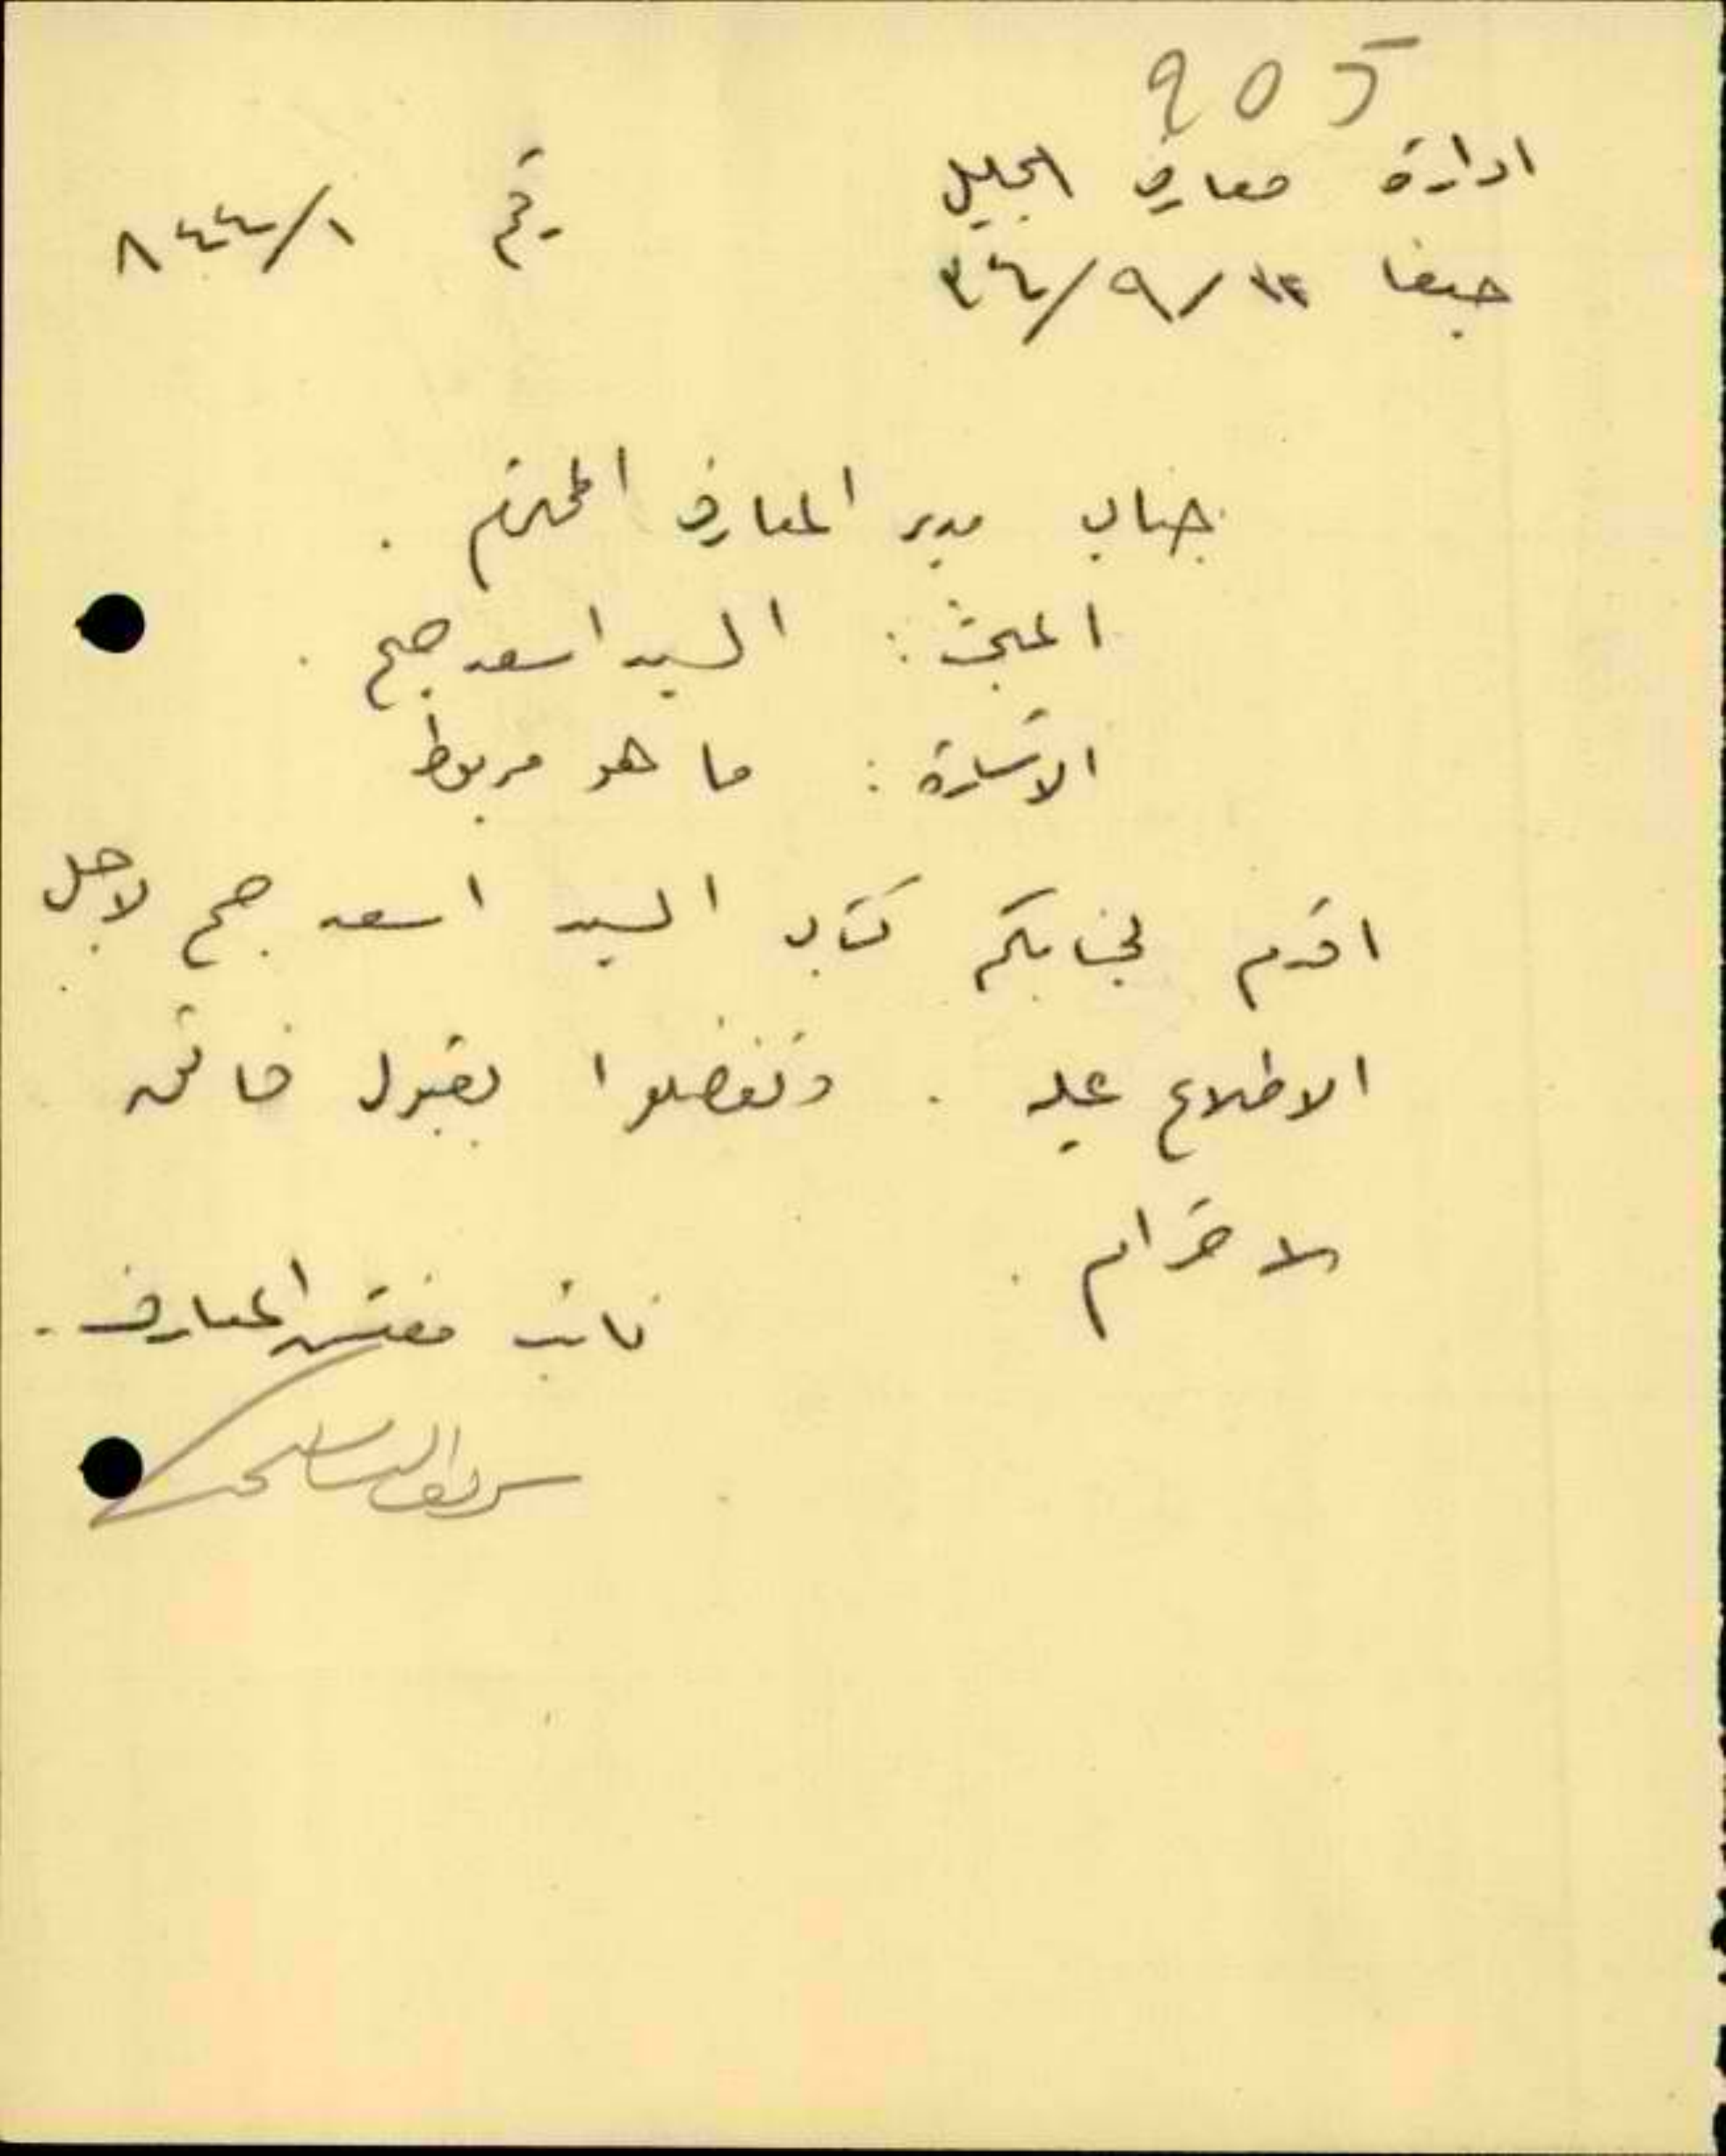 205
ادارة معارف الجليل
رقم ٨٤٤/١
حيفا ١٢/٩/٣٤
جناب مدير المعارف المحترم .
المبحث : السيد اسعد صبح .
الاشارة : ما هو مربوط
اقدم لجنابكم كتاب السيد اسعد صبح لاجل
الاطلاع عليه . وتفضلوا بقبول فائق
الاحترام .
نائب مفتش المعارف .